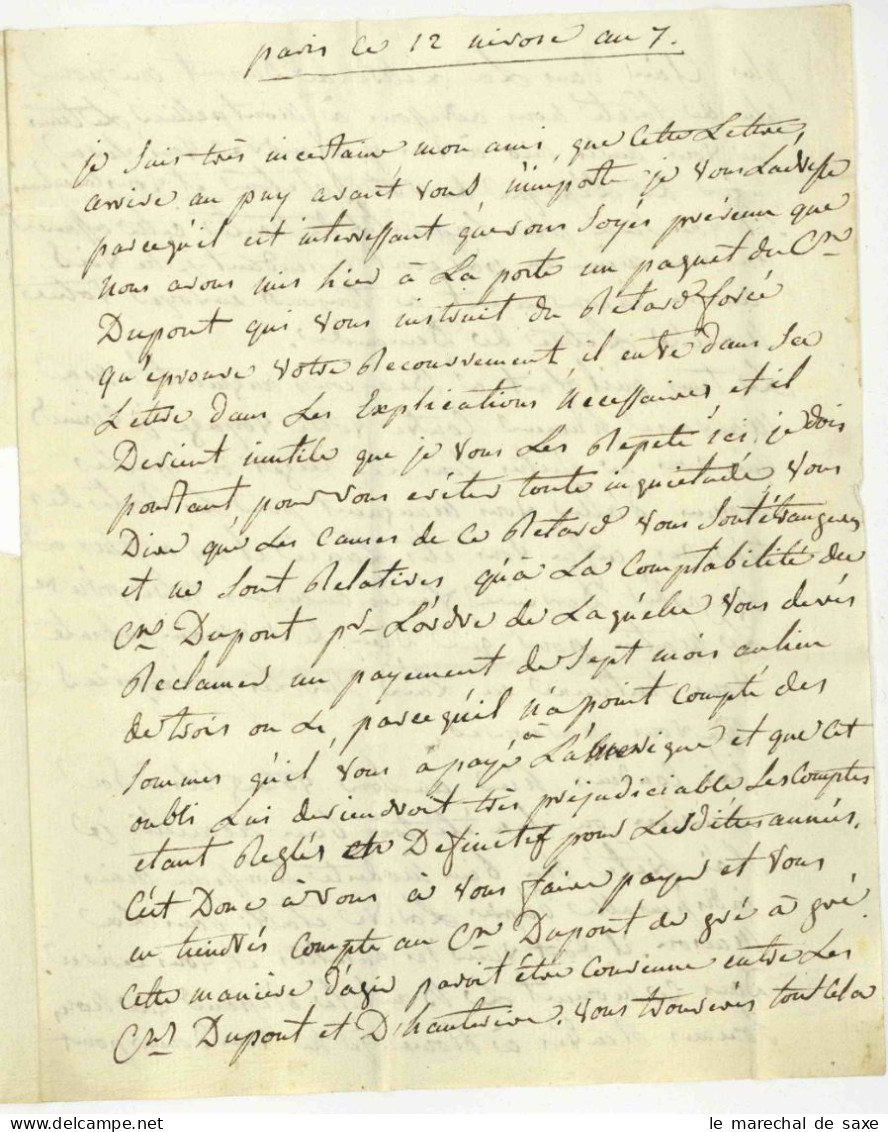 paris ce 12 nivose an 7.
je suis très incertaine mon ami, que cette Lettre,
arrive au puy avant vous n'importe je vous Ladresse
parcequ'il est interressant que vous soyés prévenu que
nous avons mis hier à La poste un paquet du Cen
Dupont qui vous instruit du Rétard forcé
qu'eprouve votre Recouvrement, il entre dans sa
Lettre dans Les Explications Necessaires, et il
Devient inutile que je vous Les Repete ici, je dois
pourtant, pour vous eviter toute inquietude, vous
Dire que Les causes de ce Retard vous sont étrangeres
et ne sont Relatives qu'à La Comptabilité du
Cen Dupont pr L'ordre de Laquelle vous devés
Reclamer un payement de sept mois aulieu
de trois ou 4, parcequ'il n'a point compté des
sommes qu'il vous a payé à L'amerique et que cet
oubli Lui deviendroit très préjudiciable Les Comptes
etant Reglés en Definitif pour Lesdites années.
C'est Donc à vous à vous faire payer et vous
en tiendrés compte au Cen Dupont de gré à gré.
cette manière d'agir paroit être convenue entre Les
Cens Dupont et D'hauterive. vous trouverés tout cela
le marechal de saxe